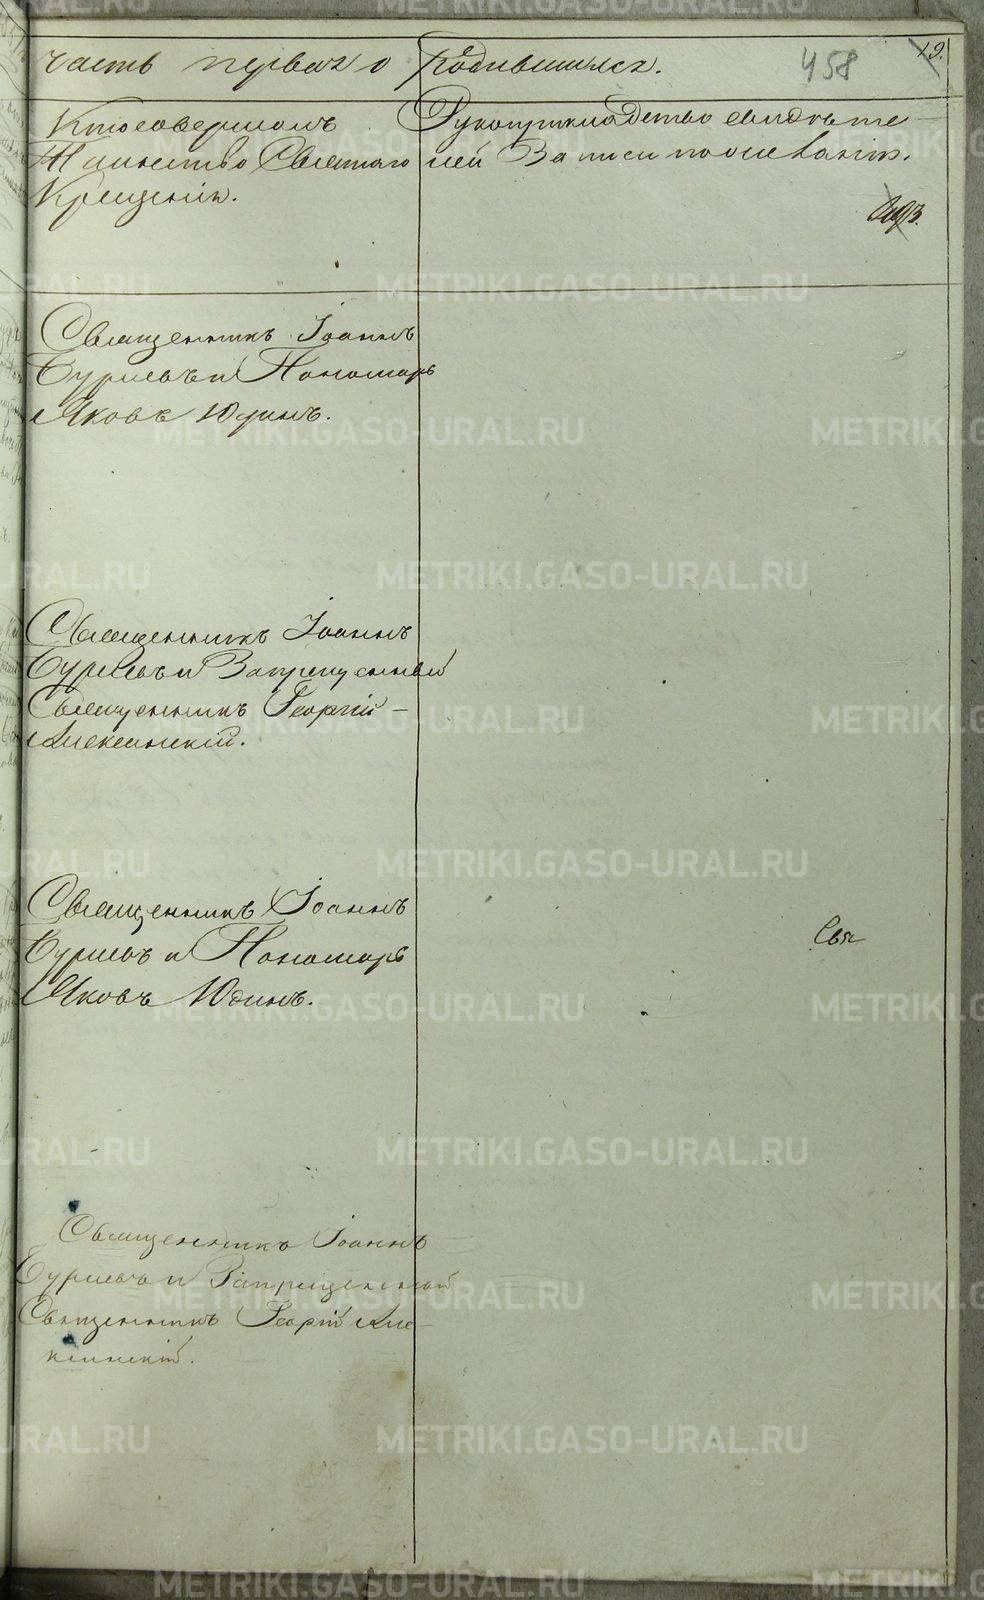 часть первая о Родившихся.
458
19.
Кто совершалъ
Таинство Святаго
Крещенія.
Рукоприкладство свидѣте-
лей Записи по желанію.
Священникъ Іоаннъ
и Пономарь
Яковъ Юдинъ.
Священникъ Іоаннъ
и Запрещенный
Священникъ Георгій
Алексинскій.
Священникъ Іоаннъ
и Пономарь
Яковъ Юдинъ.
Свя
Священникъ Іоаннъ
и Запрещенный
Священникъ Георгій Але-
ксинскій.
METRIKI.GASO-URAL.RU